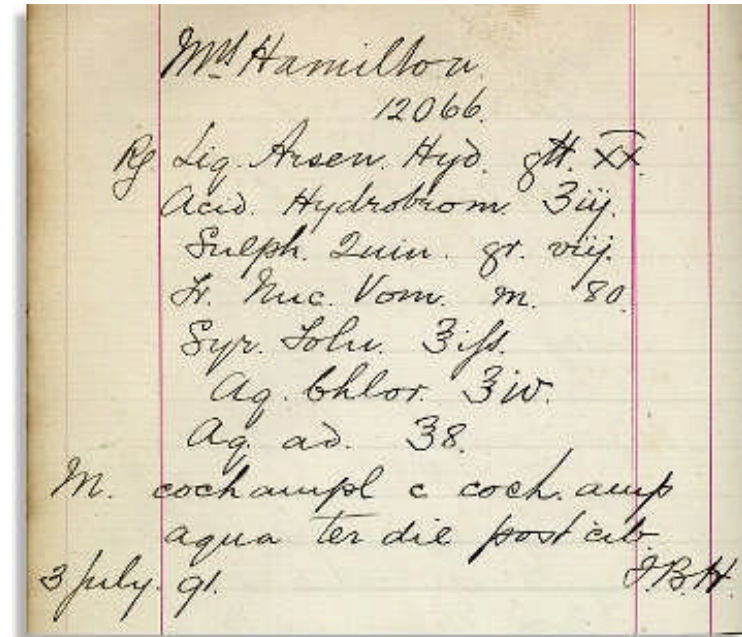 Mrs Hamilton.
12066.
Rx Liq. Arsen. Hyd. gtt. XX.
Acid. Hydrobrom. ʒiij.
Sulph. Quin. gr. viij.
Tr. Nuc. Vom. m. 80.
Syr. Tolu. ʒifs.
Aq. Chlor. ʒiv.
Aq. ad. ʒ8.
M. coch ampl c coch. amp
aqua ter die post cib.
3 July. 91. J.B.H.